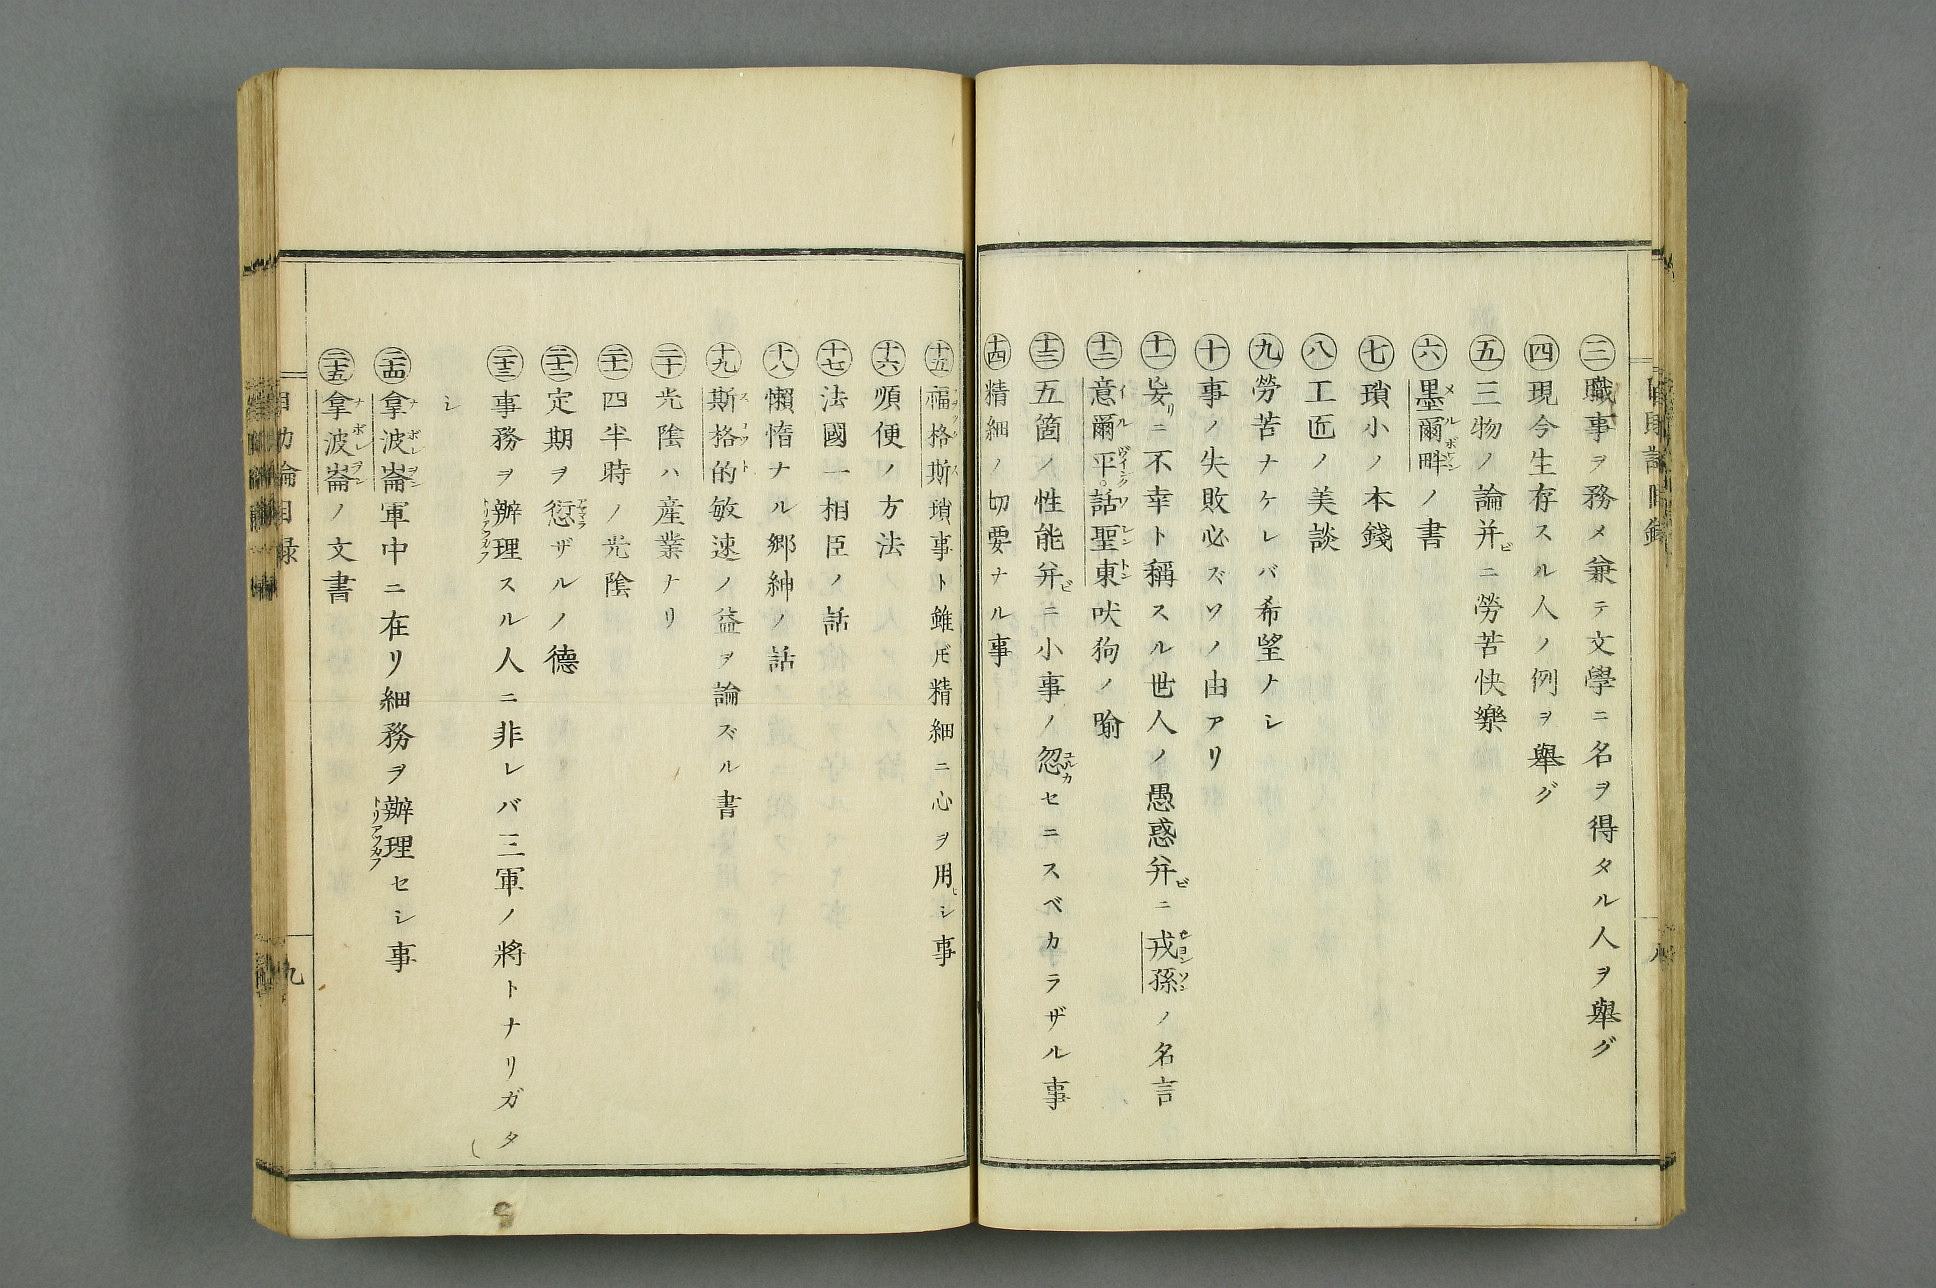 ㊂職事ヲ務メ兼テ文學ニ名ヲ得タル人ヲ擧グ
㊃現今生存スル人ノ例ヲ擧グ
㊄三物ノ論并ビニ勞苦快樂
㊅墨爾畔メルボルンノ書
㊆瑣小ノ本錢
㊇工匠ノ美談
㊈勞苦ナケレバ希望ナシ
㊉事ノ失敗必ズソノ由アリ
十一 妄リニ不幸ト稱スル世人ノ愚惑并ビニ戎孫ノ名言
十二 意爾平。話聖東吠狗ノ喻
十三 五箇ノ性能并ビニ小事ノ忽ユルカセニスベカラザル事
十四 精細ノ切要ナル事
十五 福格斯瑣事ト雖𪜈精細ニ心ヲ用ヒシ事
十六 順便ノ方法
十七 法國一相臣ノ話
十八 懶惰ナル郷紳ノ話
十九 斯格的スコット敏速ノ益ヲ論ズル書
二十 光陰ハ産業ナリ
二十一 四半時ノ光陰
二十二 定期ヲ愆アヤマラザルノ德
二十三 事務ヲ辦理トリアツカフスル人ニ非レバ三軍ノ將トナリガタ
シ
二十四 拿波崙ナポレヲン軍中ニ在リ細務ヲ辦理トリアツカフセシ事
二十五 拿波崙ナポレヲンノ文書
自助論目録
九